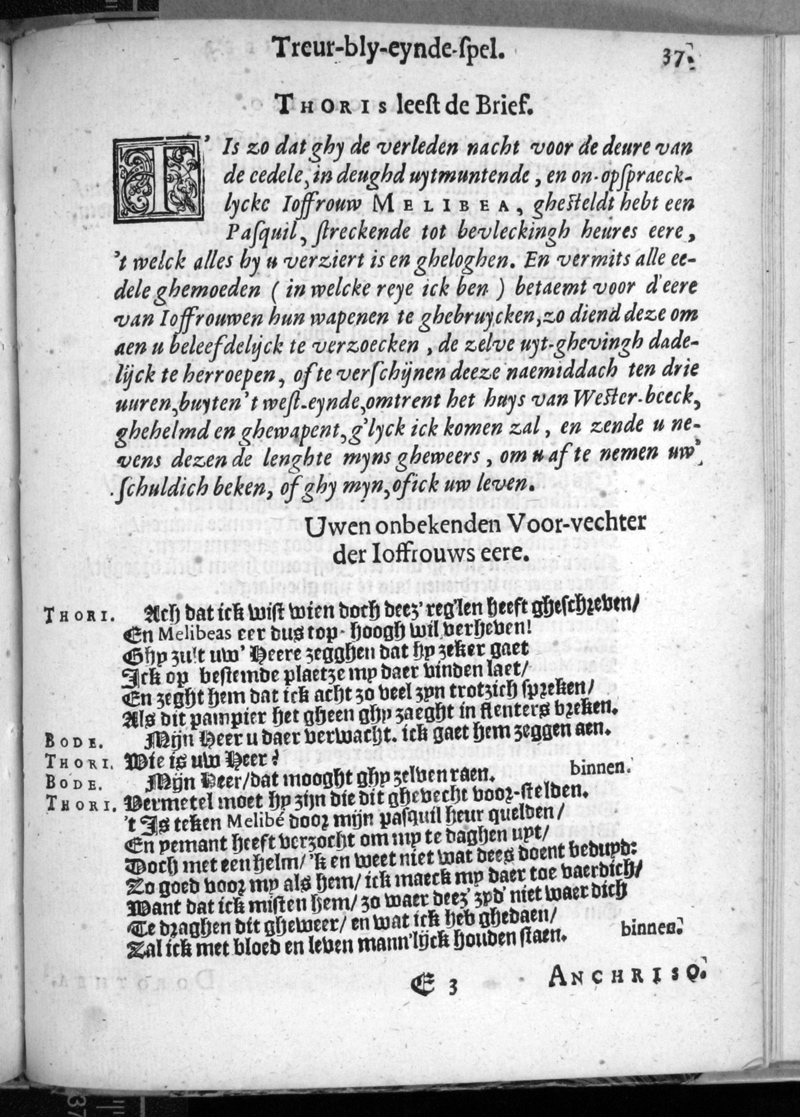 Treur-bly-eynde-spel. 37.
THORIS leest de Brief.
T' Is zo dat ghy de verleden nacht voor de deure van
de eedele, in deughd uytmuntende, en on-opspraeck-
lycke Ioffrouw MELIBEA, ghesteldt hebt een
Pasquil, streckende tot bevleckingh heures eere,
't welck alles by u verziert is en gheloghen. En vermits alle ee-
dele ghemoeden ( in welcke reye ick ben ) betaemt voor d'eere
van Ioffrouwen hun wapenen te ghebruycken, zo diend deze om
aen u beleefdelijck te verzoecken, de zelve uyt-ghevingh dade-
lijck te herroepen, ofte verschijnen deeze naemiddach ten drie
uuren, buyten 't west-eynde, omtrent het huys van Wester-beeck,
ghehelmd en ghewapent, g'lyck ick komen zal, en zende u ne-
vens dezen de lenghte myns gheweers, om u af te nemen uw
schuldich beken, of ghy myn, of ick uw leven.
Uwen onbekenden Voor-vechter
der Ioffrouws eere.
THORI. Ach dat ick wist wien doch deez' reg'len heeft gheschreven/
En Melibeas eer dus top-hoogh wil verheven!
Ghy zu't uw' Heere zegghen dat hy zeker gaet
Ick op bestemde plaetze my daer vinden laet/
En zeght hem dat ick acht zo veel zyn trotzich spreken/
Als dit pampier het gheen ghy zaeght in flenters breken.
BODE. Mijn Heer u daer verwacht. ick gaet hem zeggen aen.
THORI. Wie is uw Heer?
BODE. Mijn Heer/ dat mooght ghy zelven raen. binnen.
THORI. Vermetel moet hy zijn die dit ghevecht voor-stelden.
't Is teken Melibé door mijn pasquil heur quelden/
En yemant heeft verzocht om my te daghen uyt/
Doch met een helm/ 'k en weet niet wat dees doent beduyd:
Zo goed voor my als hem/ ick maeck my daer toe vaerdich/
Want dat ick misten hem/ zo waer deez' zyd' niet waerdich
Te draghen dit gheweer/ en wat ick heb ghedaen/
Zal ick met bloed en leven mann'lijck houden staen. binnen.
E 3 ANCHRISO.